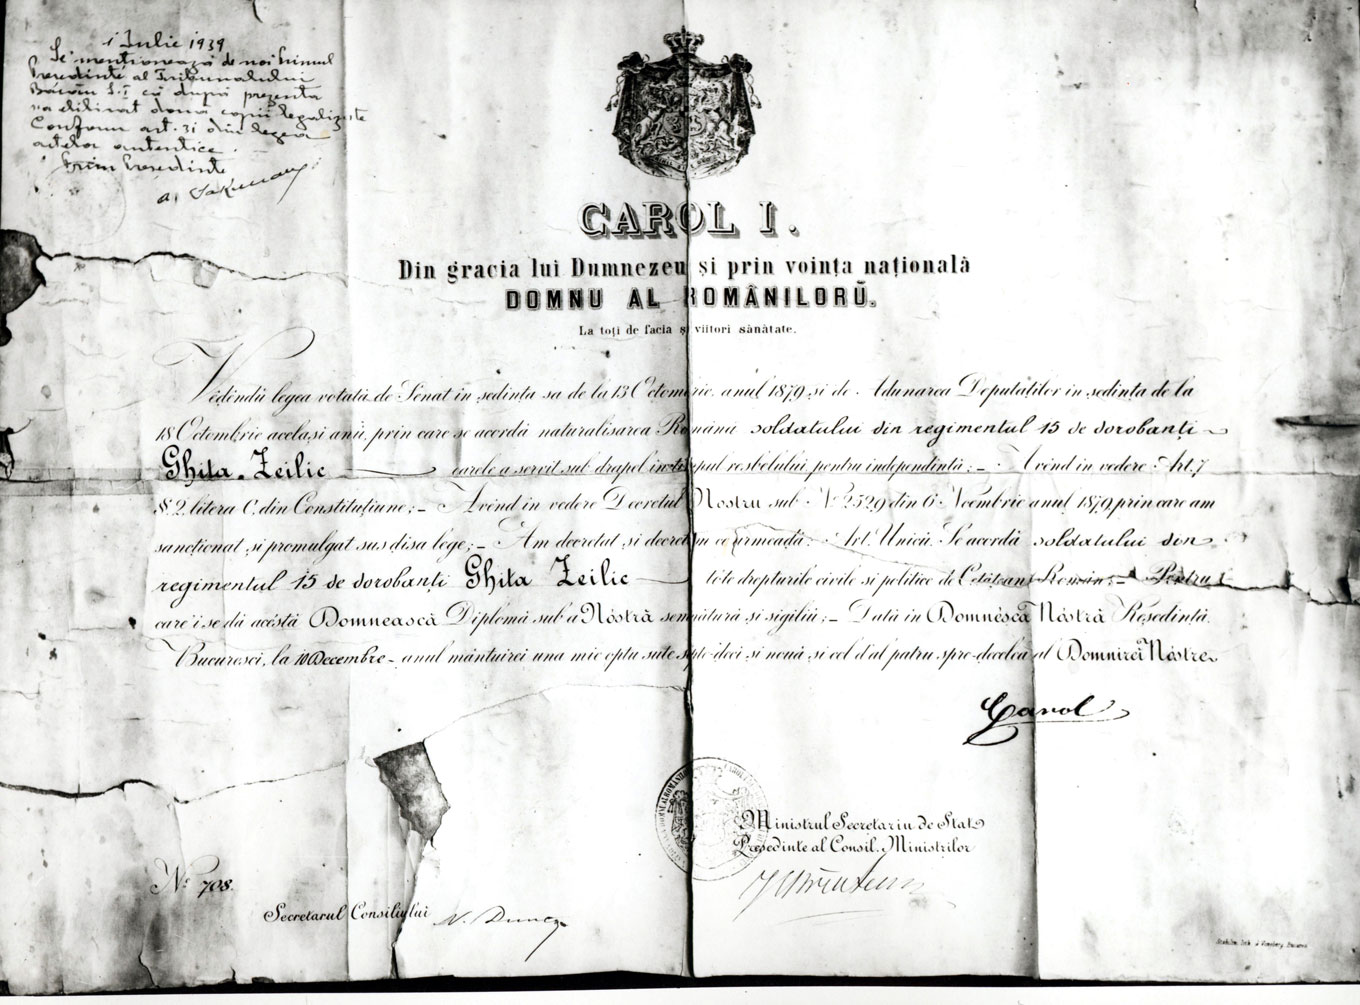 1 Iulie 1939
Se menționează de noi Primul
Președinte al Tribunalului
Bacău S. I că după prezenta
s'a eliberat două copii legalizate
Conform art. 31 din legea
actelor autentice.
Prim Președinte
CAROL I.
Din gracia lui Dumnezeu și prin voința națională
DOMNU AL ROMÂNILORŬ.
La toți de facia și viitori sănătate.
Vĕdĕndŭ legea votată de Senat in ședința sa de la 13 Octombrie anul 1879 și de Adunarea Deputaților in ședința de la
18 Octombrie același anŭ, prin care se acordă naturalisarea Română soldatului din regimentul 15 de dorobanți
Ghita Zeilic carele a servit sub drapel in timpul resbelului pentru independință; – Avĕnd in vedere Art. 7
§ 2, litera C, din Constituțiune; – Avĕnd in vedere Decretul Nostru sub No 2529 din 6 Noembrie anul 1879 prin care am
sancționat și promulgat sus disa lege; – Am decretat și decretăm ce urmează: Art. Unicŭ. Se acordă soldatului din
regimentul 15 de dorobanți Ghita Zeilic tóte drepturile civile și politice de Cetățean Român; – Pentru
care i se dă acéstă Domnească Diplomă sub a Nóstră semnătură și sigiliŭ; – Dată in Domnésca Nóstră Reședință
Bucuresci, la 10 Decembre – anul mântuirei una mie optŭ sute șépte-deci și nouă și cel d'al patru-spre-decelea al Domnirei Nóstre
Carol
Ministrul Secretariu de Stat
Președinte al Consil. Miniștrilor
No 708.
Secretarul Consiliului